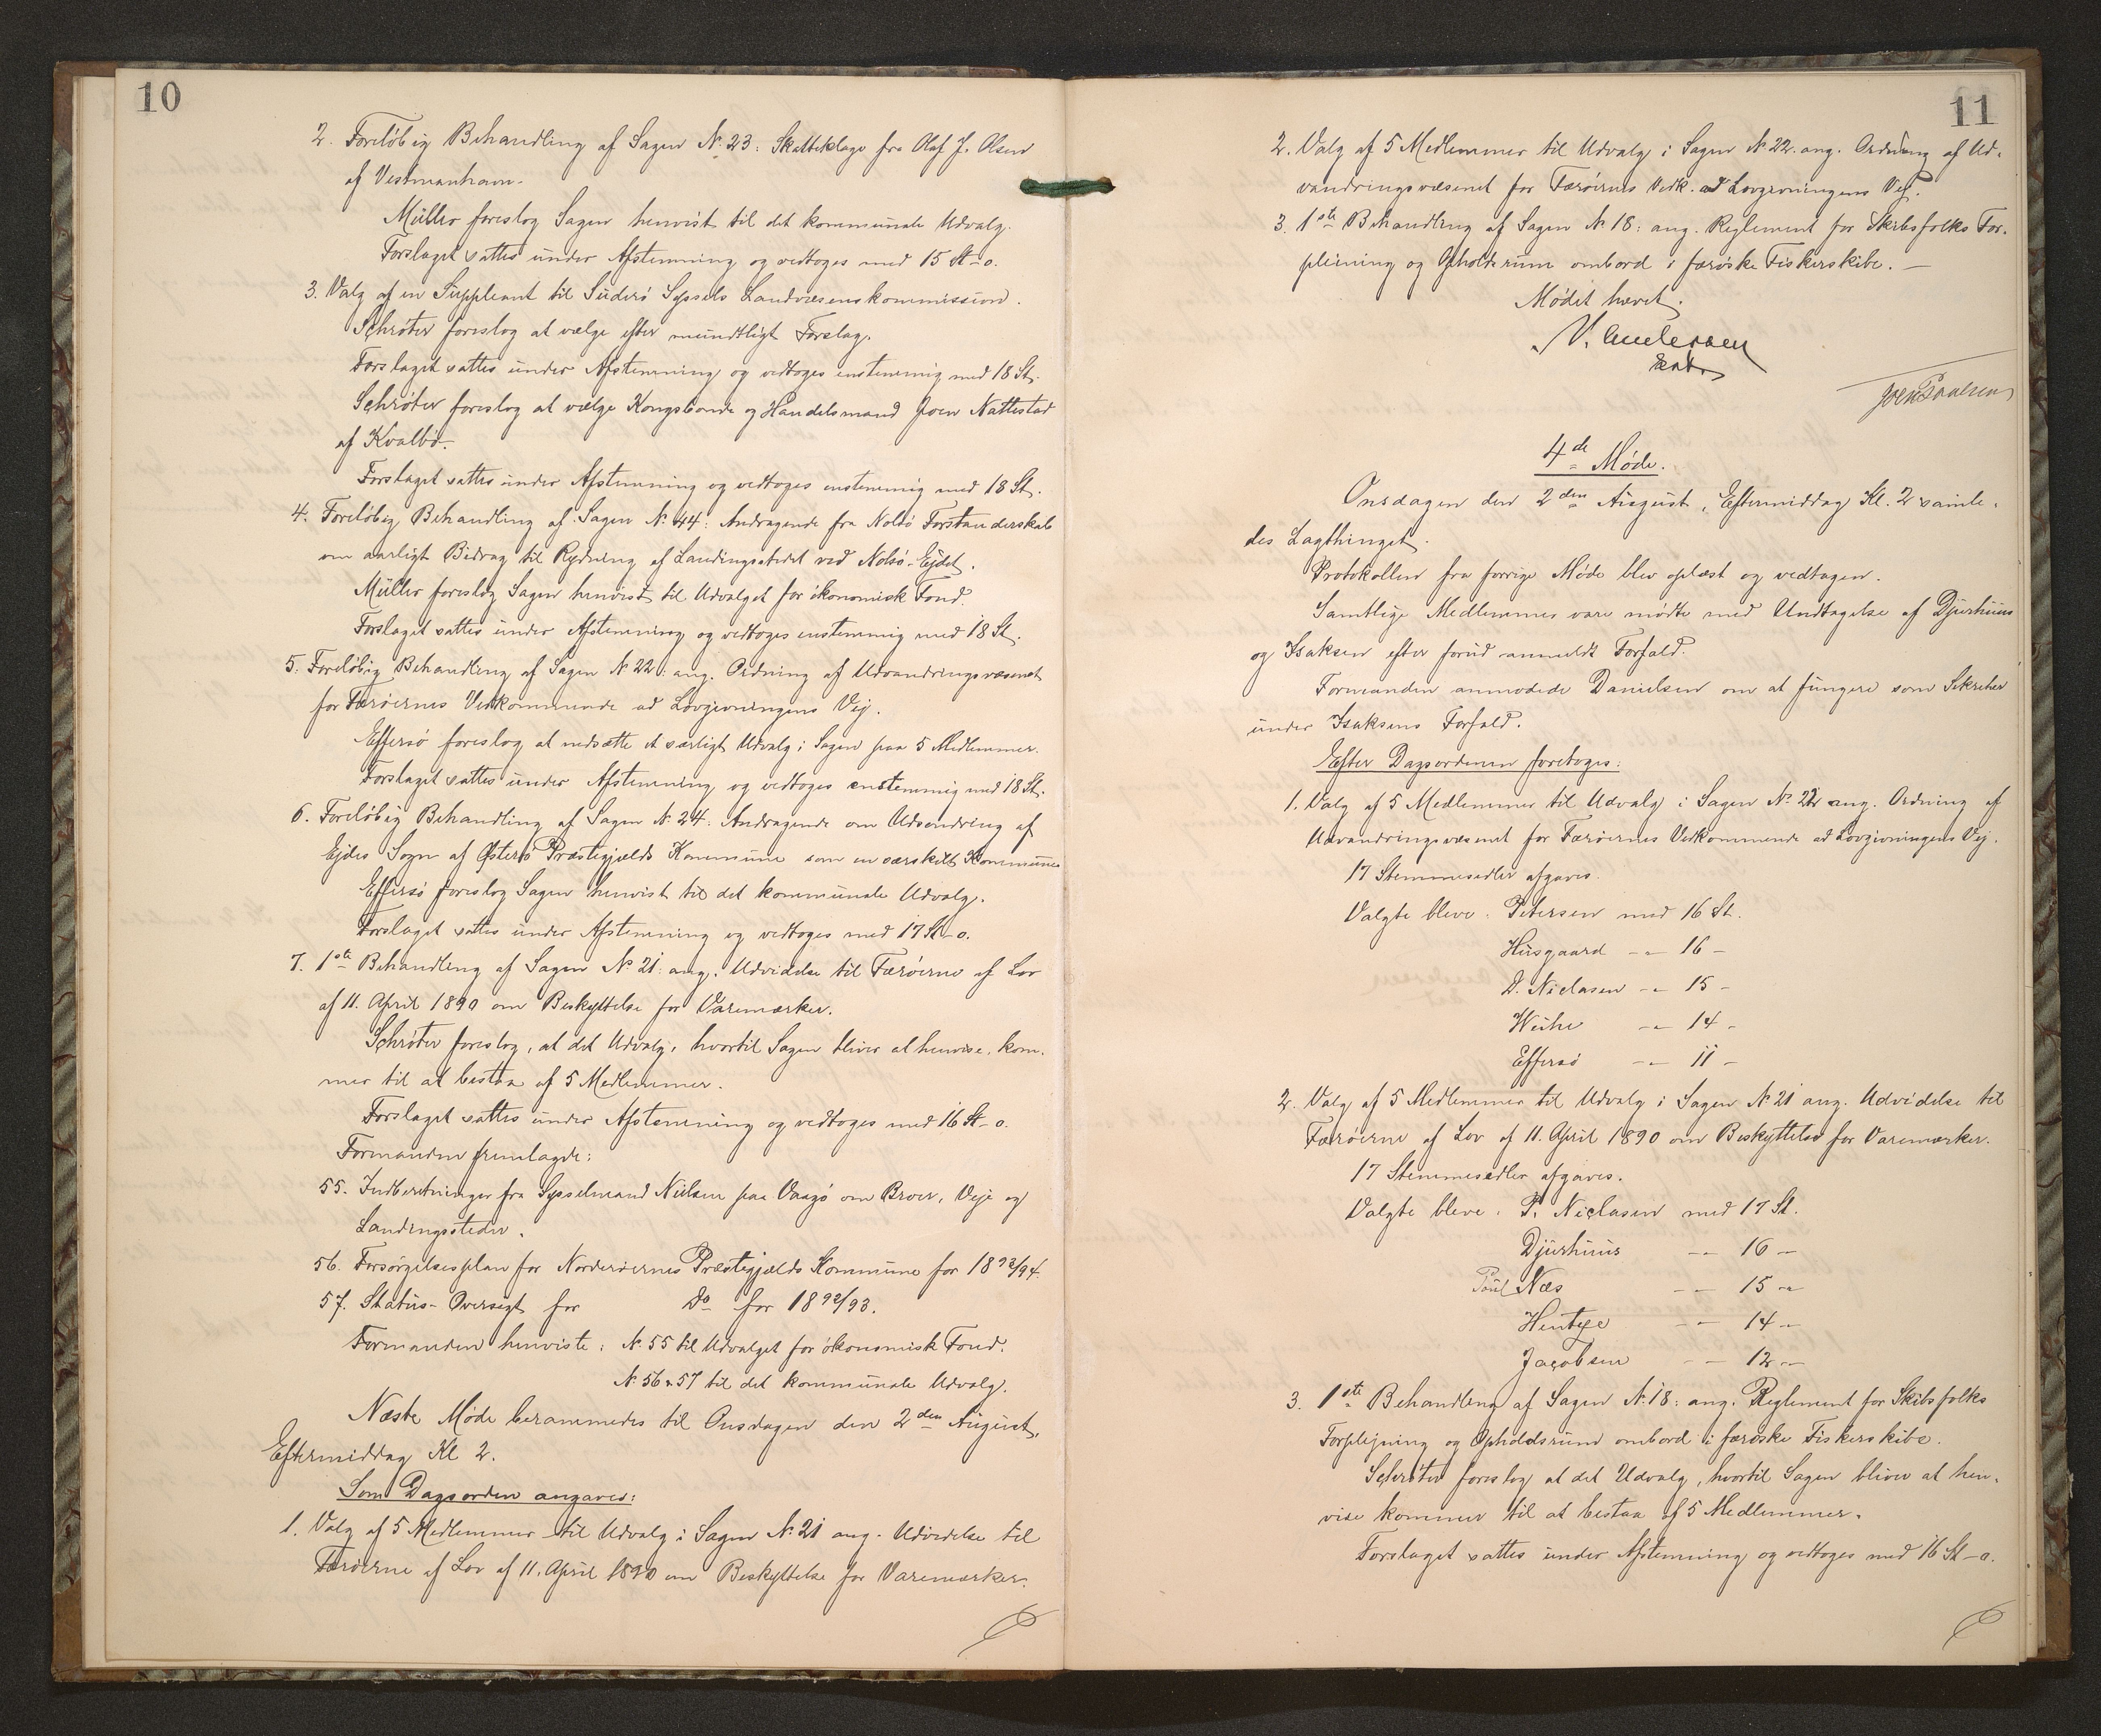 10
2. Foreløbig Behandling af Sagen N. 23: Skatteklage fra Olaf J. Olsen
af Vestmanhavn.
Müller foreslog Sagen henvist til det kommunale Udvalg.
Forslaget sattes under Afstemning og vedtoges med 15 St - o.
3. Valg af en Suppleant til Suderø Syssels Landvæsenskommission.
Schrøter foreslog at vælge efter mundtligt Forslag.
Forslaget sattes under Afstemning og vedtoges enstemmig med 18 St.
Schrøter foreslog at vælge Kongsbonde og Handelsmand Joen Nattestad
af Kvalbø.
Forslaget sattes under Afstemning og vedtoges enstemmig med 18 St.
4. Foreløbig Behandling af Sagen N. 44: Andragende fra Nolsø Forstanderskab
om aarligt Bidrag til Rydning af Landingsstedet ved Nolsø-Ejdet.
Müller foreslog Sagen henvist til Udvalget for økonomisk Fond.
Forslaget sattes under Afstemning og vedtoges enstemmig med 18 St.
5. Foreløbig Behandling af Sagen N. 22: ang. Ordning af Udvandringsvæsenet
for Færøernes Vedkommende ad Lovgivningens Vej.
Effersø foreslog at nedsætte et særligt Udvalg i Sagen paa 5 Medlemmer.
Forslaget sattes under Afstemning og vedtoges enstemmig med 18 St.
6. Foreløbig Behandling af Sagen N. 24: Andragende om Udsondring af
Ejdes Sogn af Østerø Præstegjælds Kommune som en særskilt Kommune
Effersø foreslog Sagen henvist til det kommunale Udvalg.
Forslaget sattes under Afstemning og vedtoges med 17 St - o.
7. 1ste Behandling af Sagen N. 21: ang. Udvidelse til Færøerne af Lov
af 11. April 1890 om Beskyttelse for Varemærker.
Schrøter foreslog, at det Udvalg, hvortil Sagen bliver at henvise, kom-
mer til at bestaa af 5 Medlemmer.
Forslaget sattes under Afstemning og vedtoges med 16 St - o.
Formanden fremlagde:
55. Indberetninger fra Sysselmand Nielsen paa Vaagø om Broer, Veje og
Landingssteder.
56. Forsørgelsesplan for Norderøernes Præstegjælds Kommune for 1893/94.
57. Status-Oversigt for Do for 1892/93.
Formanden henviste: N. 55 til Udvalget for økonomisk Fond.
N. 56 & 57 til det kommunale Udvalg.
Næste Møde berammedes til Onsdagen den 2den August,
Eftermiddag Kl 2.
Som Dagsorden angaves:
1. Valg af 5 Medlemmer til Udvalg i Sagen N. 21 ang. Udvidelse til
Færøerne af Lov af 11. April 1890 om Beskyttelse for Varemærker.
11
2. Valg af 5 Medlemmer til Udvalg i Sagen N. 22. ang. Ordning af Ud-
vandringsvæsenet for Færøernes Vedk. ad Lovgivningens Vej.
3. 1ste Behandling af Sagen N. 18: ang. Reglement for Skibsfolks For-
pleining og Opholdsrum ombord i færøske Fiskerskibe. —
Mødet hævet.
V. Andersen
Joen Poulsen
4de Møde.
Onsdagen den 2den August, Eftermiddag Kl. 2 samle-
des Lagthinget.
Protokollen fra forrige Møde blev oplæst og vedtagen.
Samtlige Medlemmer vare mødte med Undtagelse af Djurhuus
og Isaksen efter forud anmeldt Forfald.
Formanden anmodede Danielsen om at fungere som Sekretær
under Isaksens Forfald.
Efter Dagsordenen foretoges:
1. Valg af 5 Medlemmer til Udvalg i Sagen N. 22 ang. Ordning af
Udvandringsvæsenet for Færøernes Vedkommende ad Lovgivningens Vej.
17 Stemmesedler afgaves.
Valgte bleve: Petersen med 16 St.
Husgaard -"- 16 -
D. Niclasen -"- 15 -
Weihe -"- 14 -
Effersø -"- 11 -
2. Valg af 5 Medlemmer til Udvalg i Sagen N. 21 ang. Udvidelse til
Færøerne af Lov af 11. April 1890 om Beskyttelse for Varemærker.
17 Stemmesedler afgaves.
Valgte bleve: P. Niclasen med 17 St.
Djurhuus -"- 16 -
Poul Næs -"- 15 -
Hentze -"- 14 -
Jacobsen -"- 12 -
3. 1ste Behandling af Sagen N. 18: ang. Reglement for Skibsfolks
Forplejning og Opholdsrum ombord i færøske Fiskerskibe.
Schrøter foreslog at det Udvalg, hvortil Sagen bliver at hen-
vise kommer til at bestaa af 5 Medlemmer.
Forslaget sattes under Afstemning og vedtoges med 16 St - o.